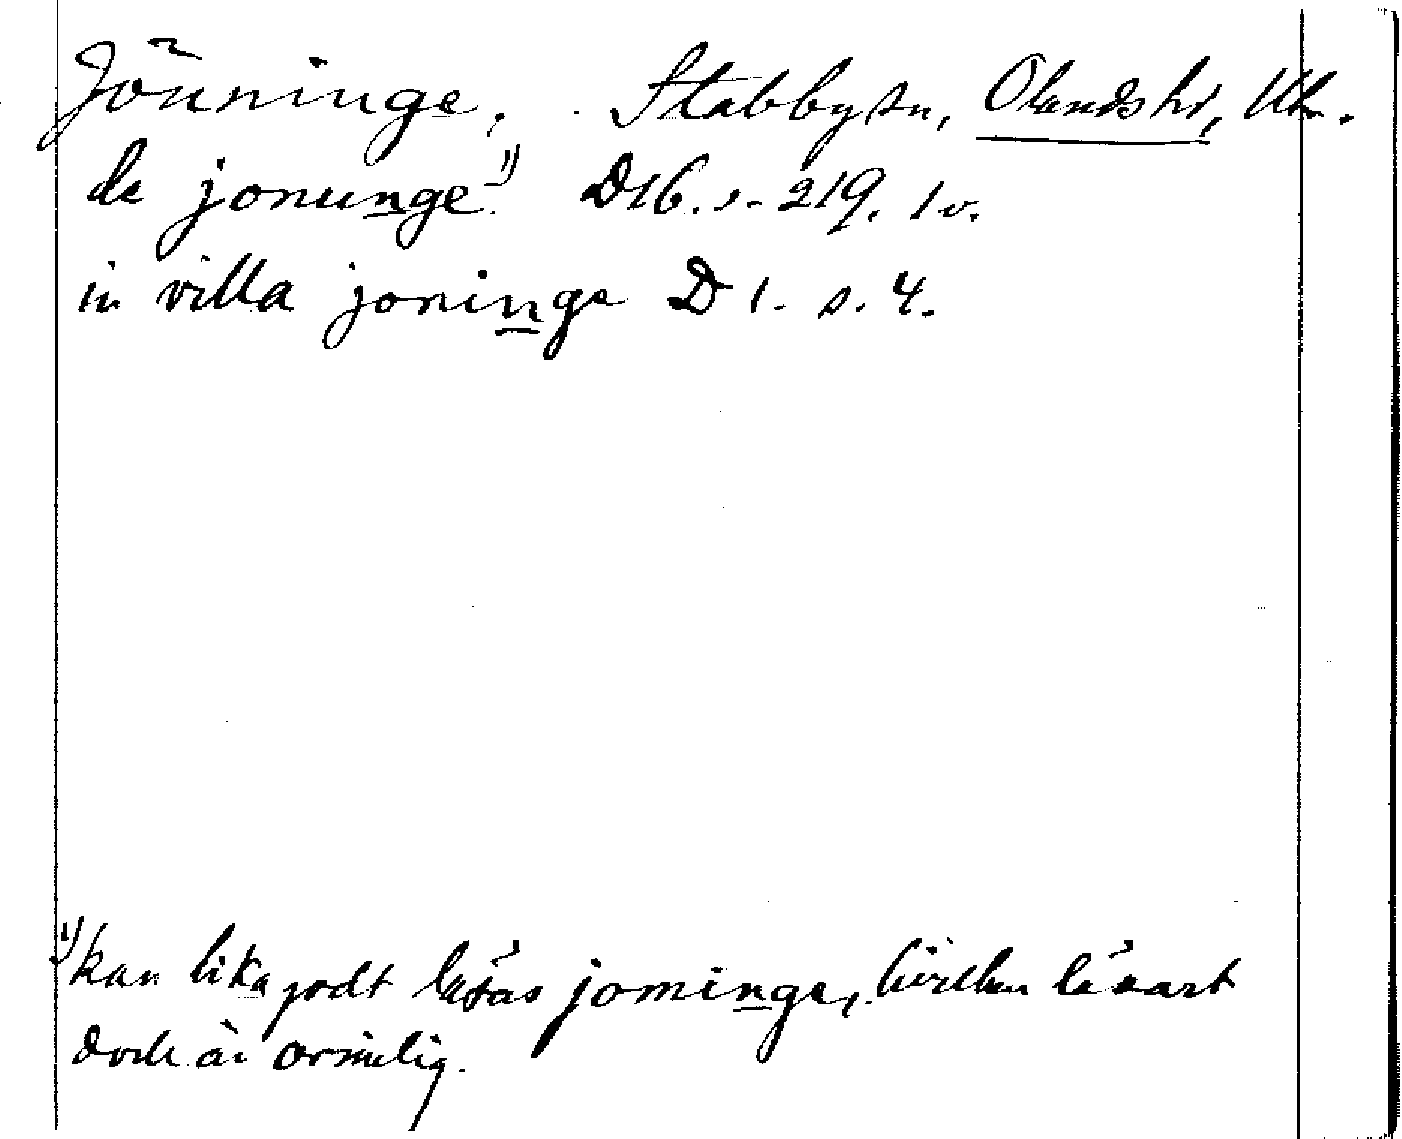 Jönninge, Stabby sn, Olands hd, Upl.
de jonunge ¹) D16. s. 219. 1v.
in villa joninge D 1. s. 4.
¹) kan lika godt läsas jominge, hvilken läsart
dock är orimlig.